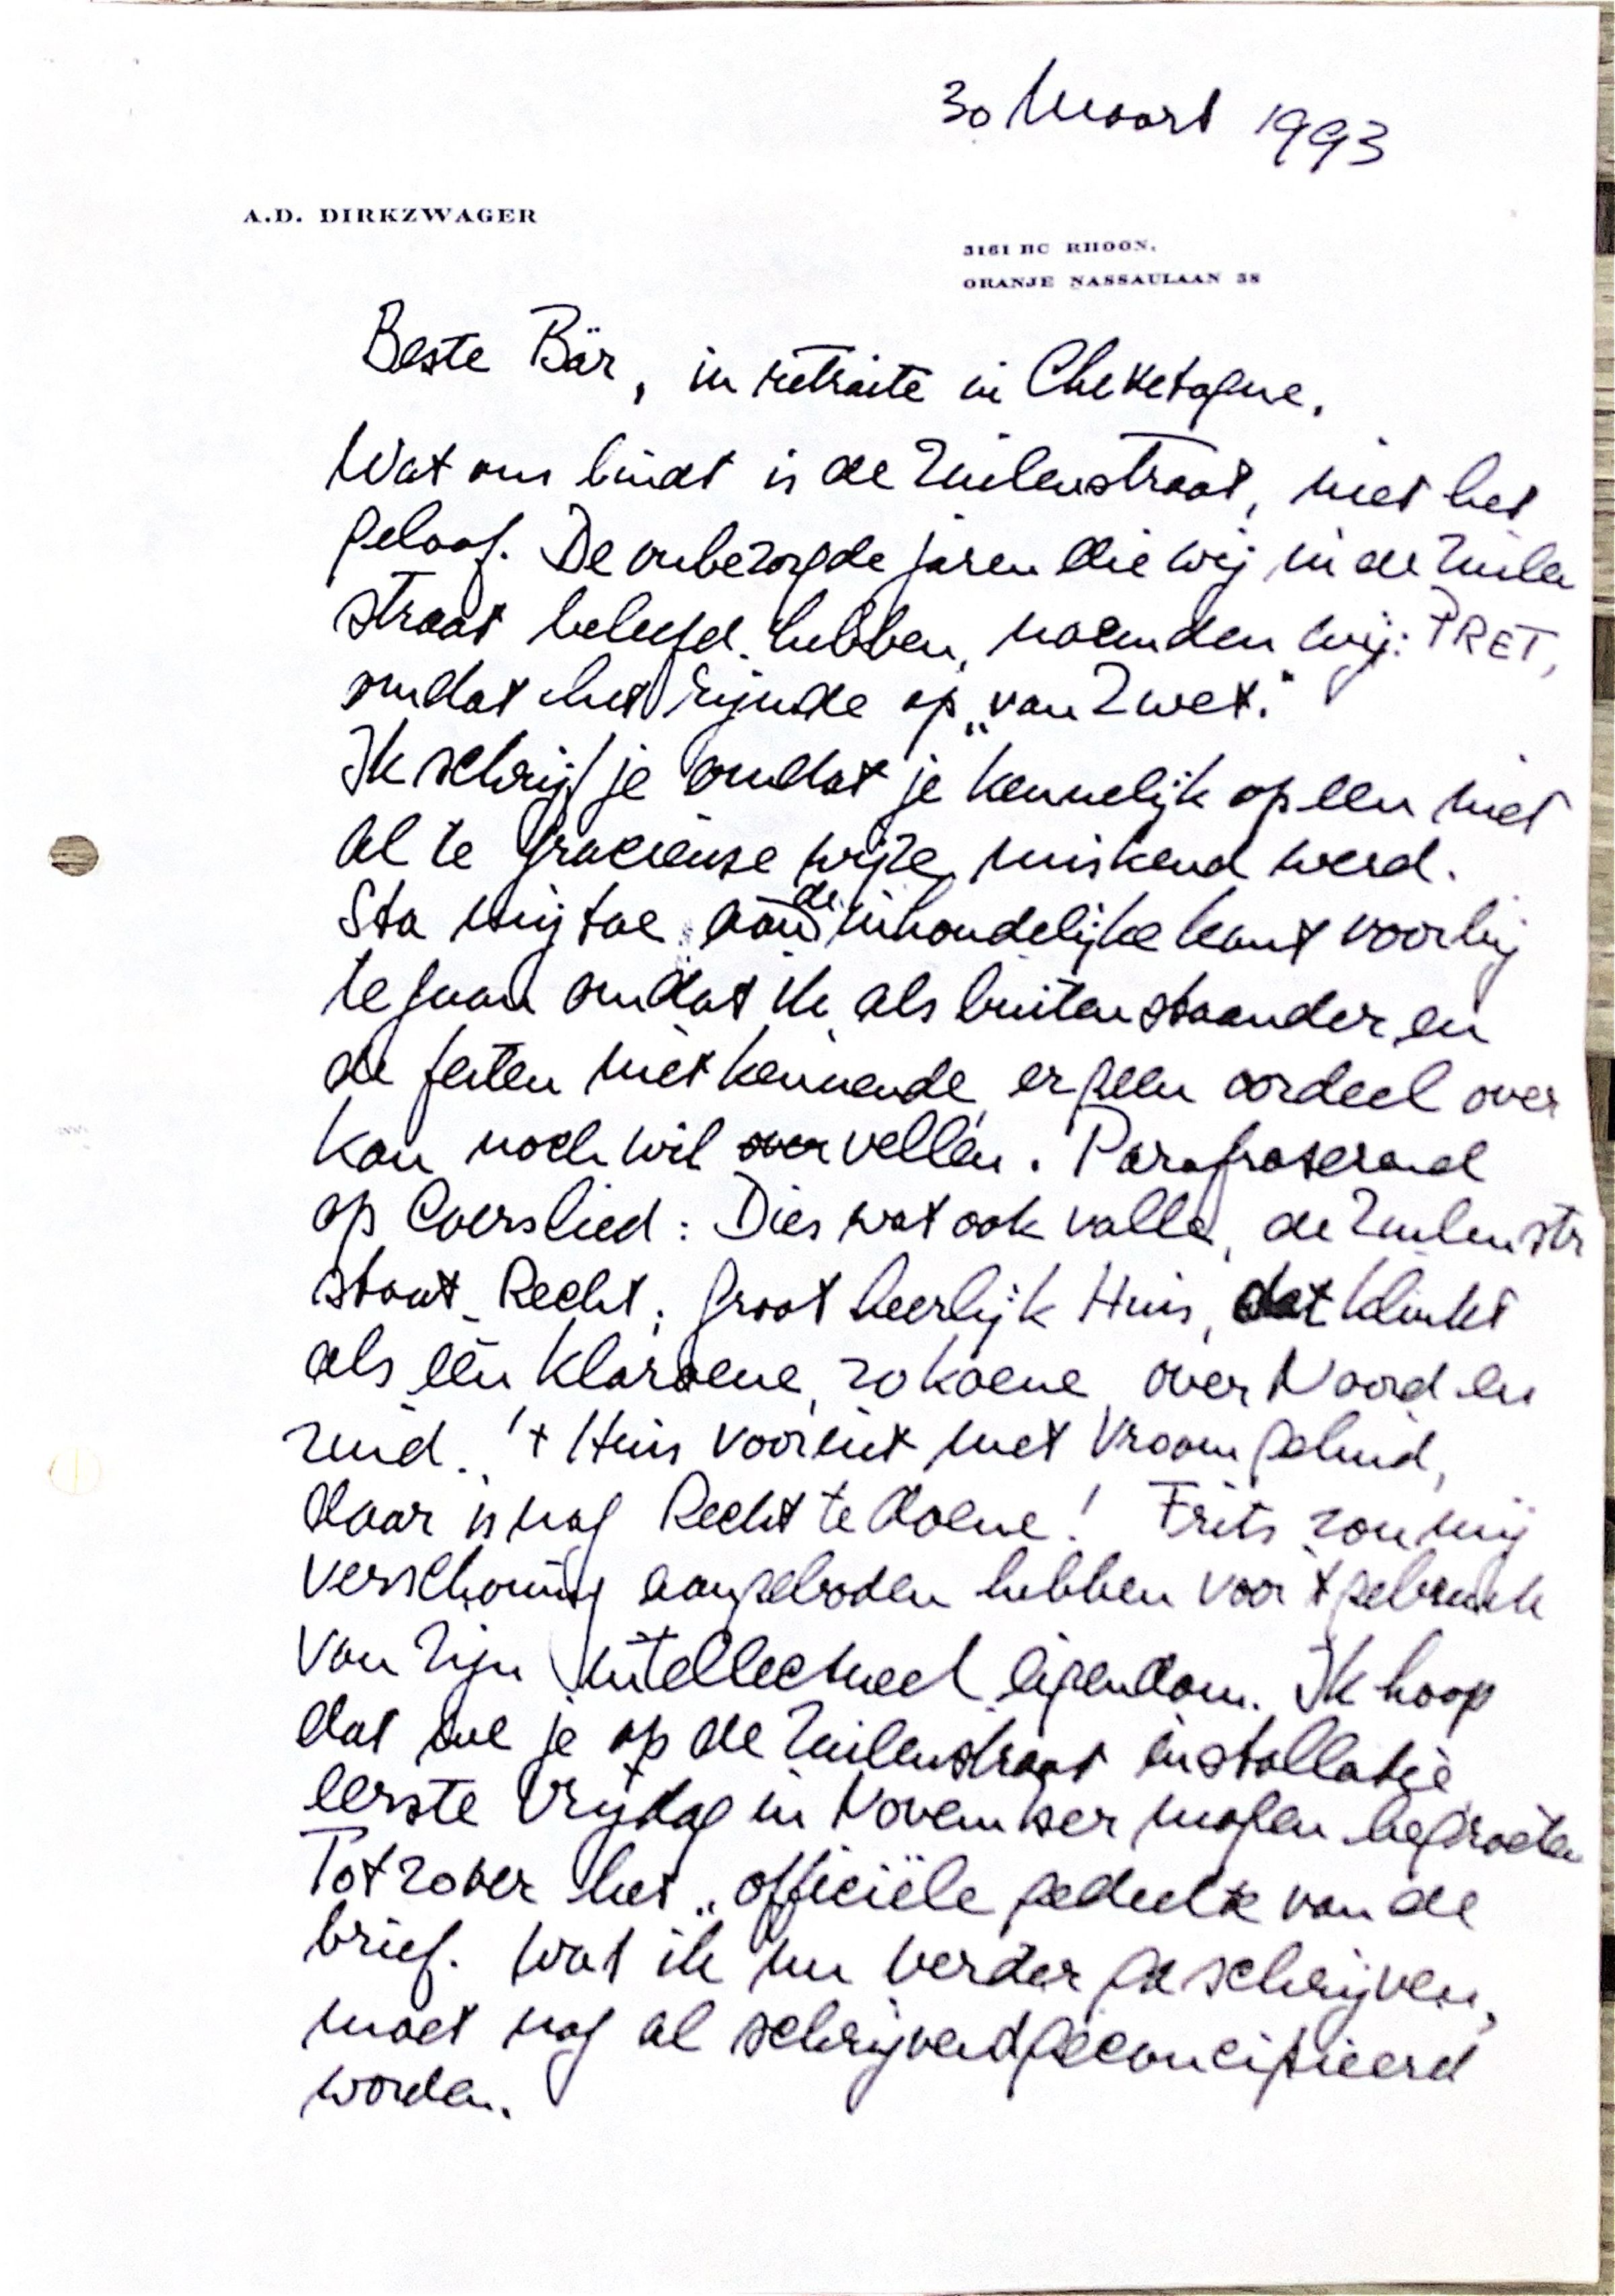 30 Maart 1993
A.D. DIRKZWAGER
3161 HC RHOON.
ORANJE NASSAULAAN 38
Beste Bär, in retraite in Chevetogne.
Wat ons bindt is de Zuilenstraat, niet het
geloof. De onbezorgde jaren die wij in de Zuilen
straat beleefd hebben, noemden wij: PRET,
omdat het rijmde op „van Zwet."
Ik schrijf je omdat je kennelijk op een niet
al te gracieuse wijze miskend werd.
Sta mij toe aan de inhoudelijke kant voorbij
te gaan omdat ik als buitenstaander en
de feiten niet kennende, er geen oordeel over
kan noch wil over vellen. Parafraserend
op Coerslied: Dies wat ook valle, de Zuilenstr
staat Recht; groot heerlijk Huis, dat klinkt
als één klaroene, zo koene, over Noord en
Zuid. 't Huis vooruit met vroom geluid,
daar is nog Recht te doene! Frits zou mij
verschoning aangeboden hebben voor 't gebruik
van zijn intellectueel eigendom. Ik hoop
dat we je op de Zuilenstraat installatie
eerste Vrijdag in November mogen begroeten
Tot zover het „officiële gedeelte van de
brief. Wat ik nu verder ga schrijven,
moet nog al schrijvend geconcipieerd
worden.